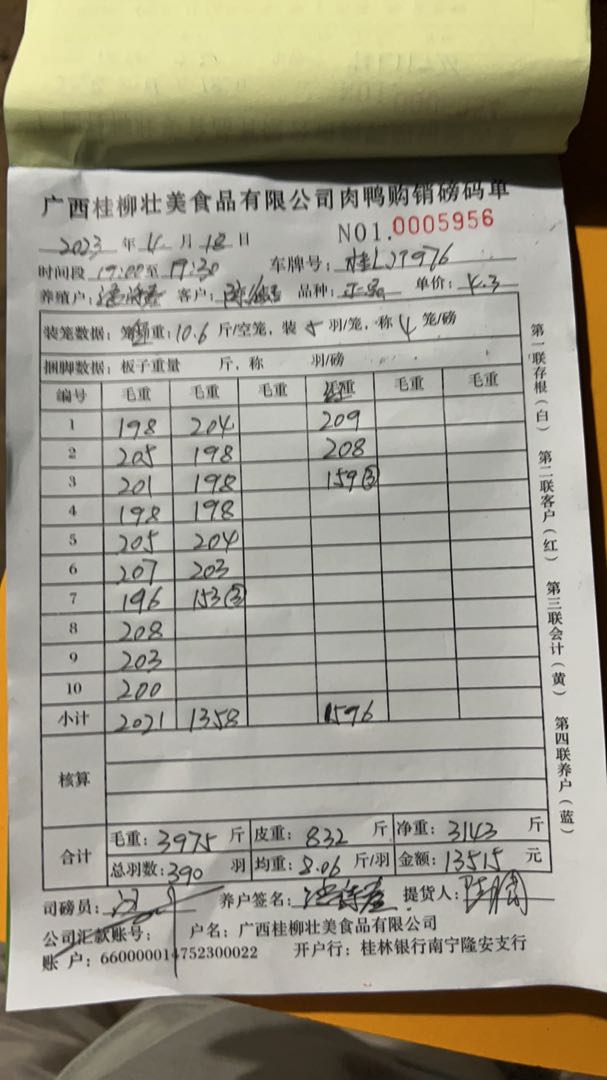 广西桂柳壮美食品有限公司肉鸭购销磅码单
2023 年 4 月 18 日 NO1. 0005956
时间段 17:00至 17:30 车牌号: 桂L J7976
养殖户: 客户: 品种: 正品 单价: 4.3
装笼数据: 笼重: 10.6 斤/空笼, 装 5 羽/笼, 称 4 笼/磅
捆脚数据: 板子重量 斤, 称 羽/磅
编号 毛重 毛重 毛重 毛重 毛重 毛重
1 198 204 209
2 205 198 208
3 201 198 159③
4 198 198
5 205 204
6 207 203
7 196 153③
8 208
9 203
10 200
小计 2021 1358 596
核算
合计 毛重: 3975 斤 皮重: 832 斤 净重: 3143 斤
总羽数: 390 羽 均重: 8.06 斤/羽 金额: 13515 元
司磅员: 养户签名: 提货人:
公司汇款账号: 户名: 广西桂柳壮美食品有限公司
账 户: 660000014752300022 开户行: 桂林银行南宁隆安支行
第一联存根(白) 第二联客户(红) 第三联会计(黄) 第四联养户(蓝)